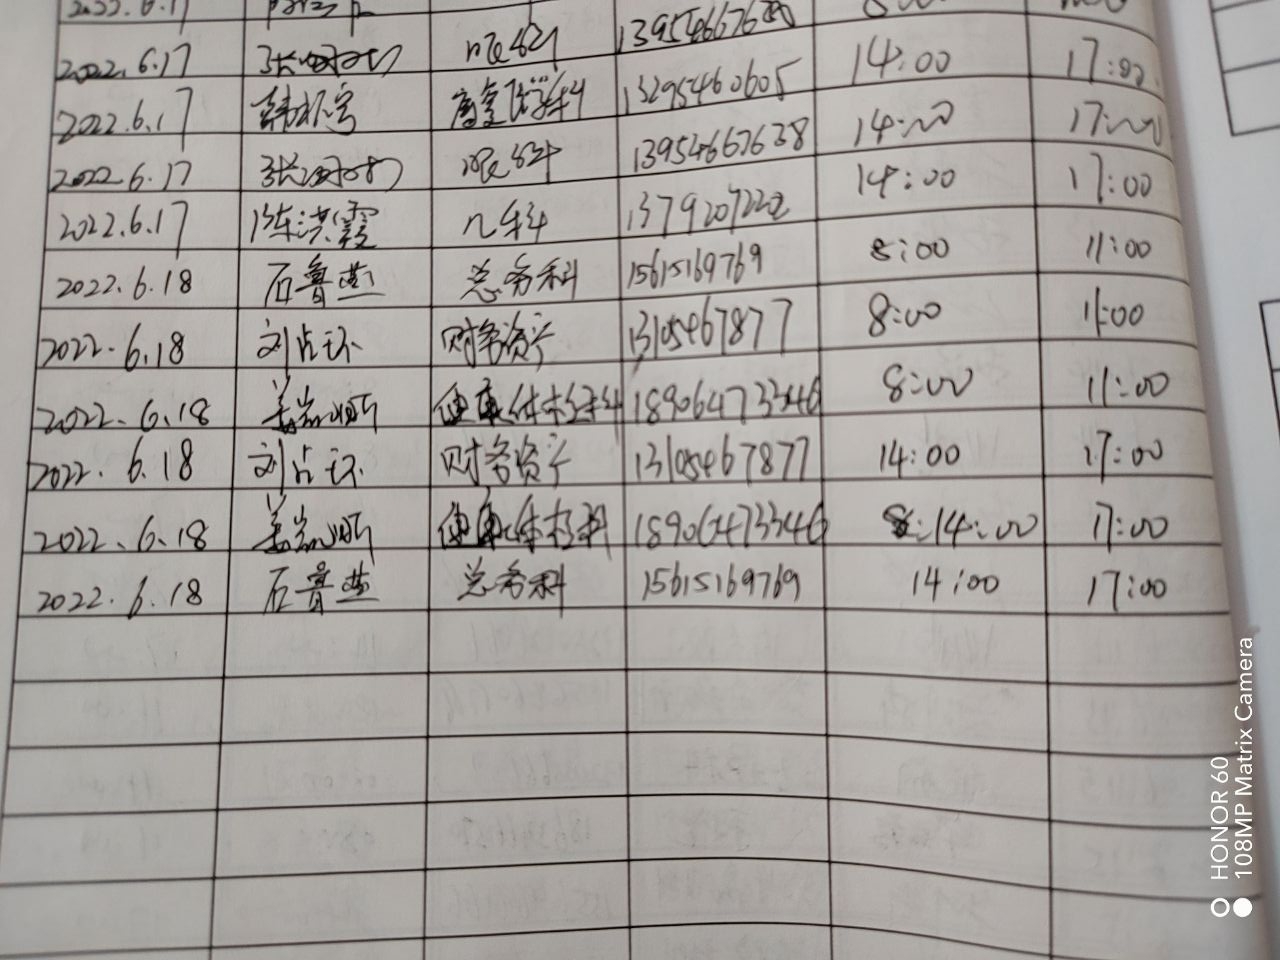 2022.6.17 眼科 14:00 17:00
2022.6.17 康复医学科 13295460605 14:00 17:00
2022.6.17 眼科 13954667638 14:00 17:00
2022.6.17 陈洪霞 儿科 13792072202 8:00 11:00
2022.6.18 石鲁燕 总务科 15615169769 8:00 11:00
2022.6.18 刘占环 财务资产 13105467877 8:00 11:00
2022.6.18 健康体检科 18906473346 14:00 17:00
2022.6.18 刘占环 财务资产 13105467877 14:00 17:00
2022.6.18 健康体检科 18906473346 14:00 17:00
2022.6.18 石鲁燕 总务科 15615169769
HONOR 60
108MP Matrix Camera